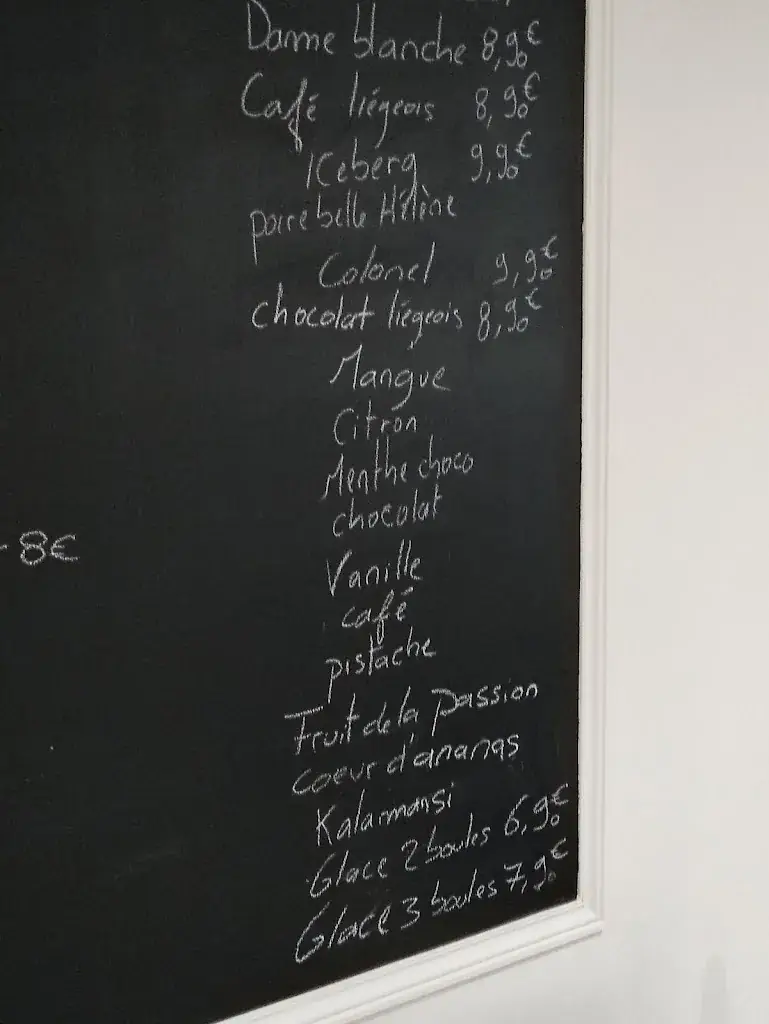 Dame blanche 8,90€
Café liégeois 8,90€
Iceberg 9,90€
poire belle Hélène
Colonel 9,90€
chocolat liégeois 8,90€
Mangue
Citron
Menthe choco
chocolat
Vanille
café
pistache
Fruit de la passion
coeur d'ananas
Kalamansi
Glace 2 boules 6,90€
Glace 3 boules 7,90€
- 8€